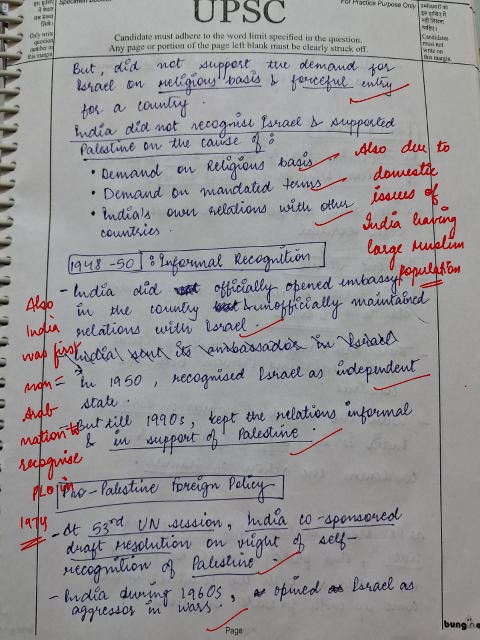 Specimen Booklet
UPSC
For Practice Purpose Only
Candidate must adhere to the word limit specified in the question.
Any page or portion of the page left blank must be clearly struck off.
Only write
question
number in
this margin.
Candidates
must not
write on
this margin.
But, did not support the demand for
Israel on religious basis & forceful entry
for a country.
India did not recognise Israel & supported
Palestine on the cause of :
• Demand on Religious basis
• Demand on mandated terms
• India's own relations with other
countries.
Also due to
domestic
issues of
India having
large muslim
population
1948-50 : Informal Recognition
- India did officially opened embassy
in the country & unofficially maintained
relations with Israel.
India sent its ambassador in Israel
- In 1950, recognised Israel as independent
state.
- But till 1990s, kept the relations informal
& in support of Palestine.
Also
India
was first
non
Arab
nation to
recognise
PLO in
1974
Pro-Palestine Foreign Policy
- At 53rd UN session, India co-sponsored
draft resolution on right of self-
recognition of Palestine
- India during 1960s, opined Israel as
aggressor in wars.
Page